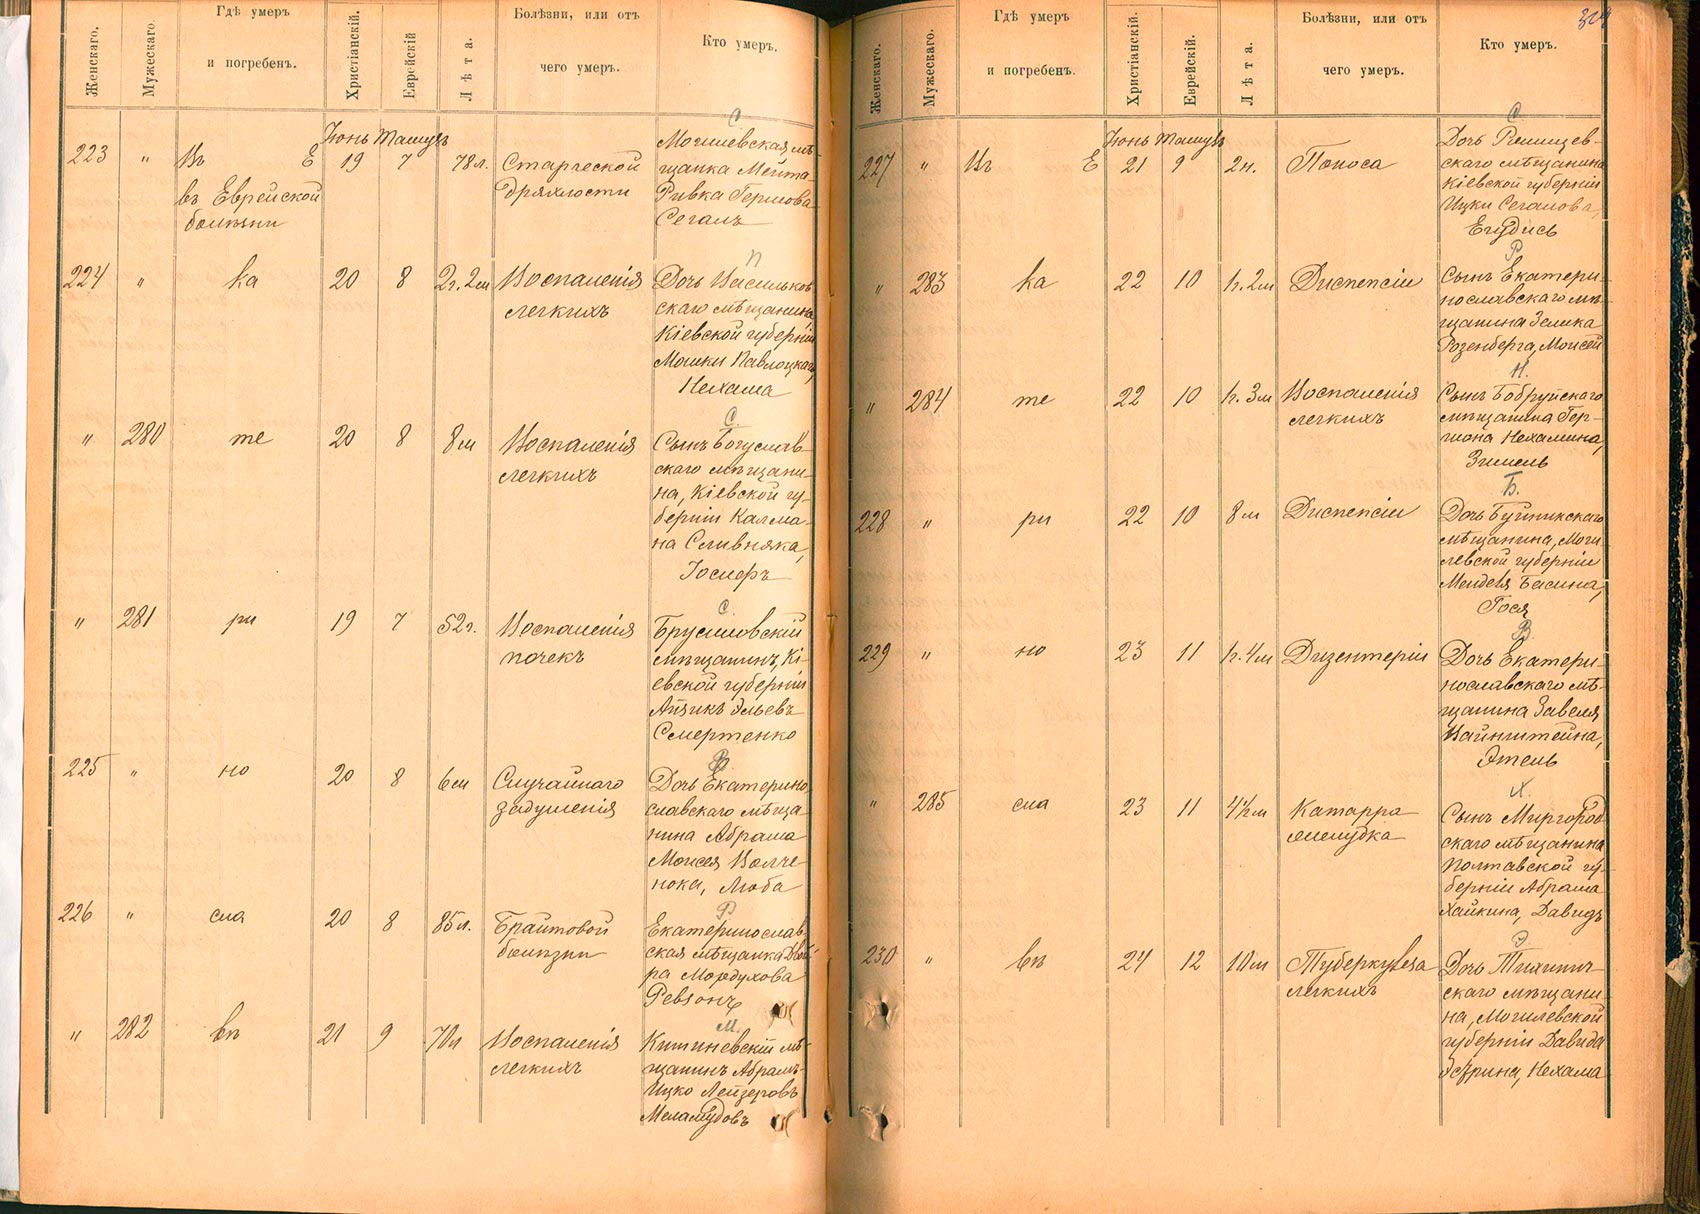 Женскаго.
Мужескаго.
Гдѣ умеръ
и погребенъ.
Христіанскій.
Еврейскій
Лѣта.
Болѣзни, или отъ
чего умеръ.
Кто умеръ.
С
Іюнь Тамузъ
223 " Въ Е 19 7 78 л. Старческой
дряхлости
въ Еврейской
больницѣ
Могилевская мѣ-
щанка Мейта-
Ривка Гершова
Сегалъ
П
224 " ка 20 8 2г. 2м Воспаленія
легкихъ
Дочь Васильков
скаго мѣщанина,
Кіевской губерніи
Мошки Павлоцкаго,
Нехама
С.
" 280 те 20 8 8м Воспаленія
легкихъ
Сынъ Богуслав
скаго мѣщани-
на, Кіевской гу-
берніи Калма-
на Сливняка,
Іосифъ
С.
" 281 ри 19 7 52г. Воспаленія
почекъ
Брусиловскій
мѣщанинъ, Кі-
евской губерніи
Айзикъ Эльевъ
Смертенко
В
225 " но 20 8 6м Случайнаго
задушенія
Дочь Екатерино
славскаго мѣща-
нина Абрама
Моисея Волче-
нока, Люба
Р
226 " сла 20 8 85л. Брайтовой
болѣзни
Екатеринослав
ская мѣщанка Двой-
ра Мордухова
Ревзонъ
М.
" 282 вѣ 21 9 70л Воспаленія
легкихъ
Кишиневскій мѣ-
щанинъ Абрамъ-
Ицко Лейзеровъ
Меламудовъ
Женскаго.
Мужескаго.
Гдѣ умеръ
и погребенъ.
Христіанскій.
Еврейскій.
Лѣта.
Болѣзни, или отъ
чего умеръ.
Кто умеръ.
С
Іюнь Тамузъ
227 " Въ Е 21 9 2н. Поноса
Дочь Рѣчицев-
скаго мѣщанина
Кіевской губерніи
Ицки Сегалова,
Егудись
Р
" 283 ка 22 10 1г. 2м Диспепсіи
Сынъ Екатери-
нославскаго мѣ-
щанина Зелика
Розенберга, Моисей
Н.
" 284 те 22 10 1г. 3м Воспаленія
легкихъ
Сынъ Бобруйскаго
мѣщанина Гер-
шона Нехамина,
Зимель
Б.
228 " ри 22 10 8м Диспепсіи
Дочь Буйникскаго
мѣщанина, Моги
левской губерніи
Менделя Басина,
Гося
В
229 " но 23 11 1г. 4м Дизентеріи
Дочь Екатери-
нославскаго мѣ-
щанина Завеля
Вайнштейна,
Этель
Х.
" 285 сла 23 11 4½м Катарра
желудка
Сынъ Миргород
скаго мѣщанина
Полтавской гу-
берніи Абрама
Хайкина, Давидъ
Э
230 " вѣ 24 12 10м Туберкулеза
легкихъ
Дочь Тихинич-
скаго мѣщани-
на, Могилевской
губерніи Давида
Эстрина, Нехама